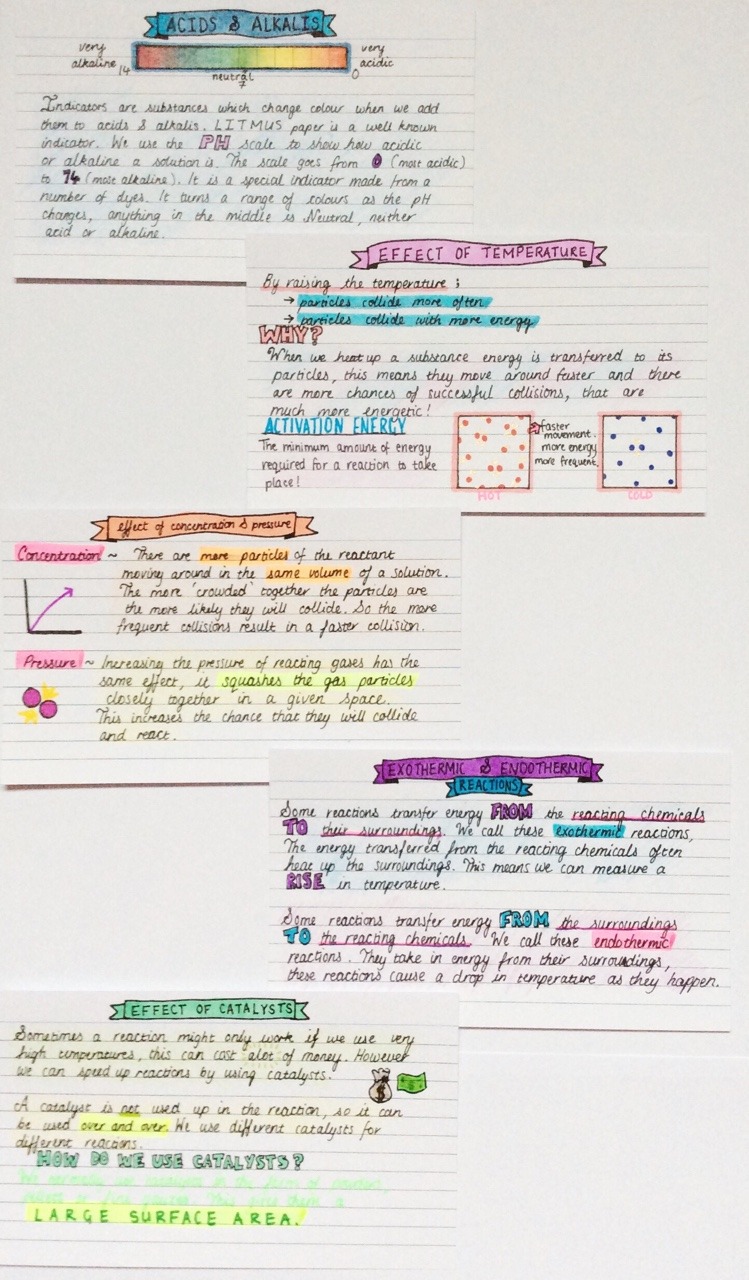 ACIDS & ALKALIS
very alkaline 14
neutral 7
very acidic 0
Indicators are substances which change colour when we add
them to acids & alkalis. LITMUS paper is a well known
indicator. We use the PH scale to show how acidic
or alkaline a solution is. The scale goes from 0 (most acidic)
to 14 (most alkaline). It is a special indicator made from a
number of dyes. It turns a range of colours as the pH
changes, anything in the middle is Neutral, neither
acid or alkaline.
EFFECT OF TEMPERATURE
By raising the temperature ;
→ particles collide more often
→ particles collide with more energy
WHY?
When we heat up a substance energy is transferred to its
particles, this means they move around faster and there
are more chances of successful collisions, that are
much more energetic!
ACTIVATION ENERGY
The minimum amount of energy
required for a reaction to take
place!
faster
movement.
more energy
more frequent.
HOT
COLD
effect of concentration & pressure
Concentration ~ There are more particles of the reactant
moving around in the same volume of a solution.
The more 'crowded' together the particles are
the more likely they will collide. So the more
frequent collisions result in a faster collision.
Pressure ~ Increasing the pressure of reacting gases has the
same effect, it squashes the gas particles
closely together in a given space.
This increases the chance that they will collide
and react.
EXOTHERMIC & ENDOTHERMIC
REACTIONS
Some reactions transfer energy FROM the reacting chemicals
TO their surroundings. We call these exothermic reactions,
The energy transferred from the reacting chemicals often
heat up the surroundings. This means we can measure a
RISE in temperature.
Some reactions transfer energy FROM the surroundings
TO the reacting chemicals. We call these endothermic
reactions. They take in energy from their surroundings,
these reactions cause a drop in temperature as they happen.
EFFECT OF CATALYSTS
Sometimes a reaction might only work if we use very
high temperatures, this can cost alot of money. However
we can speed up reactions by using catalysts.
$
A catalyst is not used up in the reaction, so it can
be used over and over. We use different catalysts for
different reactions.
HOW DO WE USE CATALYSTS?
We normally use catalysts in the form of
This gives them a
LARGE SURFACE AREA.